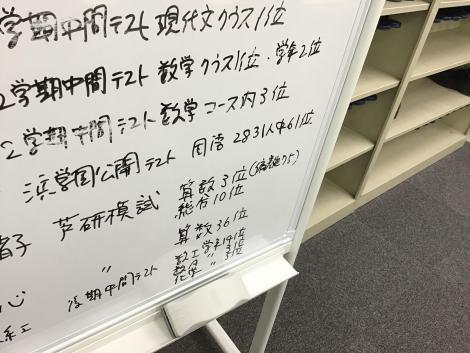 学期中間テスト 現代文クラス1位
2学期中間テスト 数学クラス1位・学年2位
2学期中間テスト 数学 コース内3位
浜学園公開テスト 国語 2831人中61位
子 芦研模試 算数3位
総合10位
〃 算数36位
心 後期中間テスト 数工学年19位
〃 3位